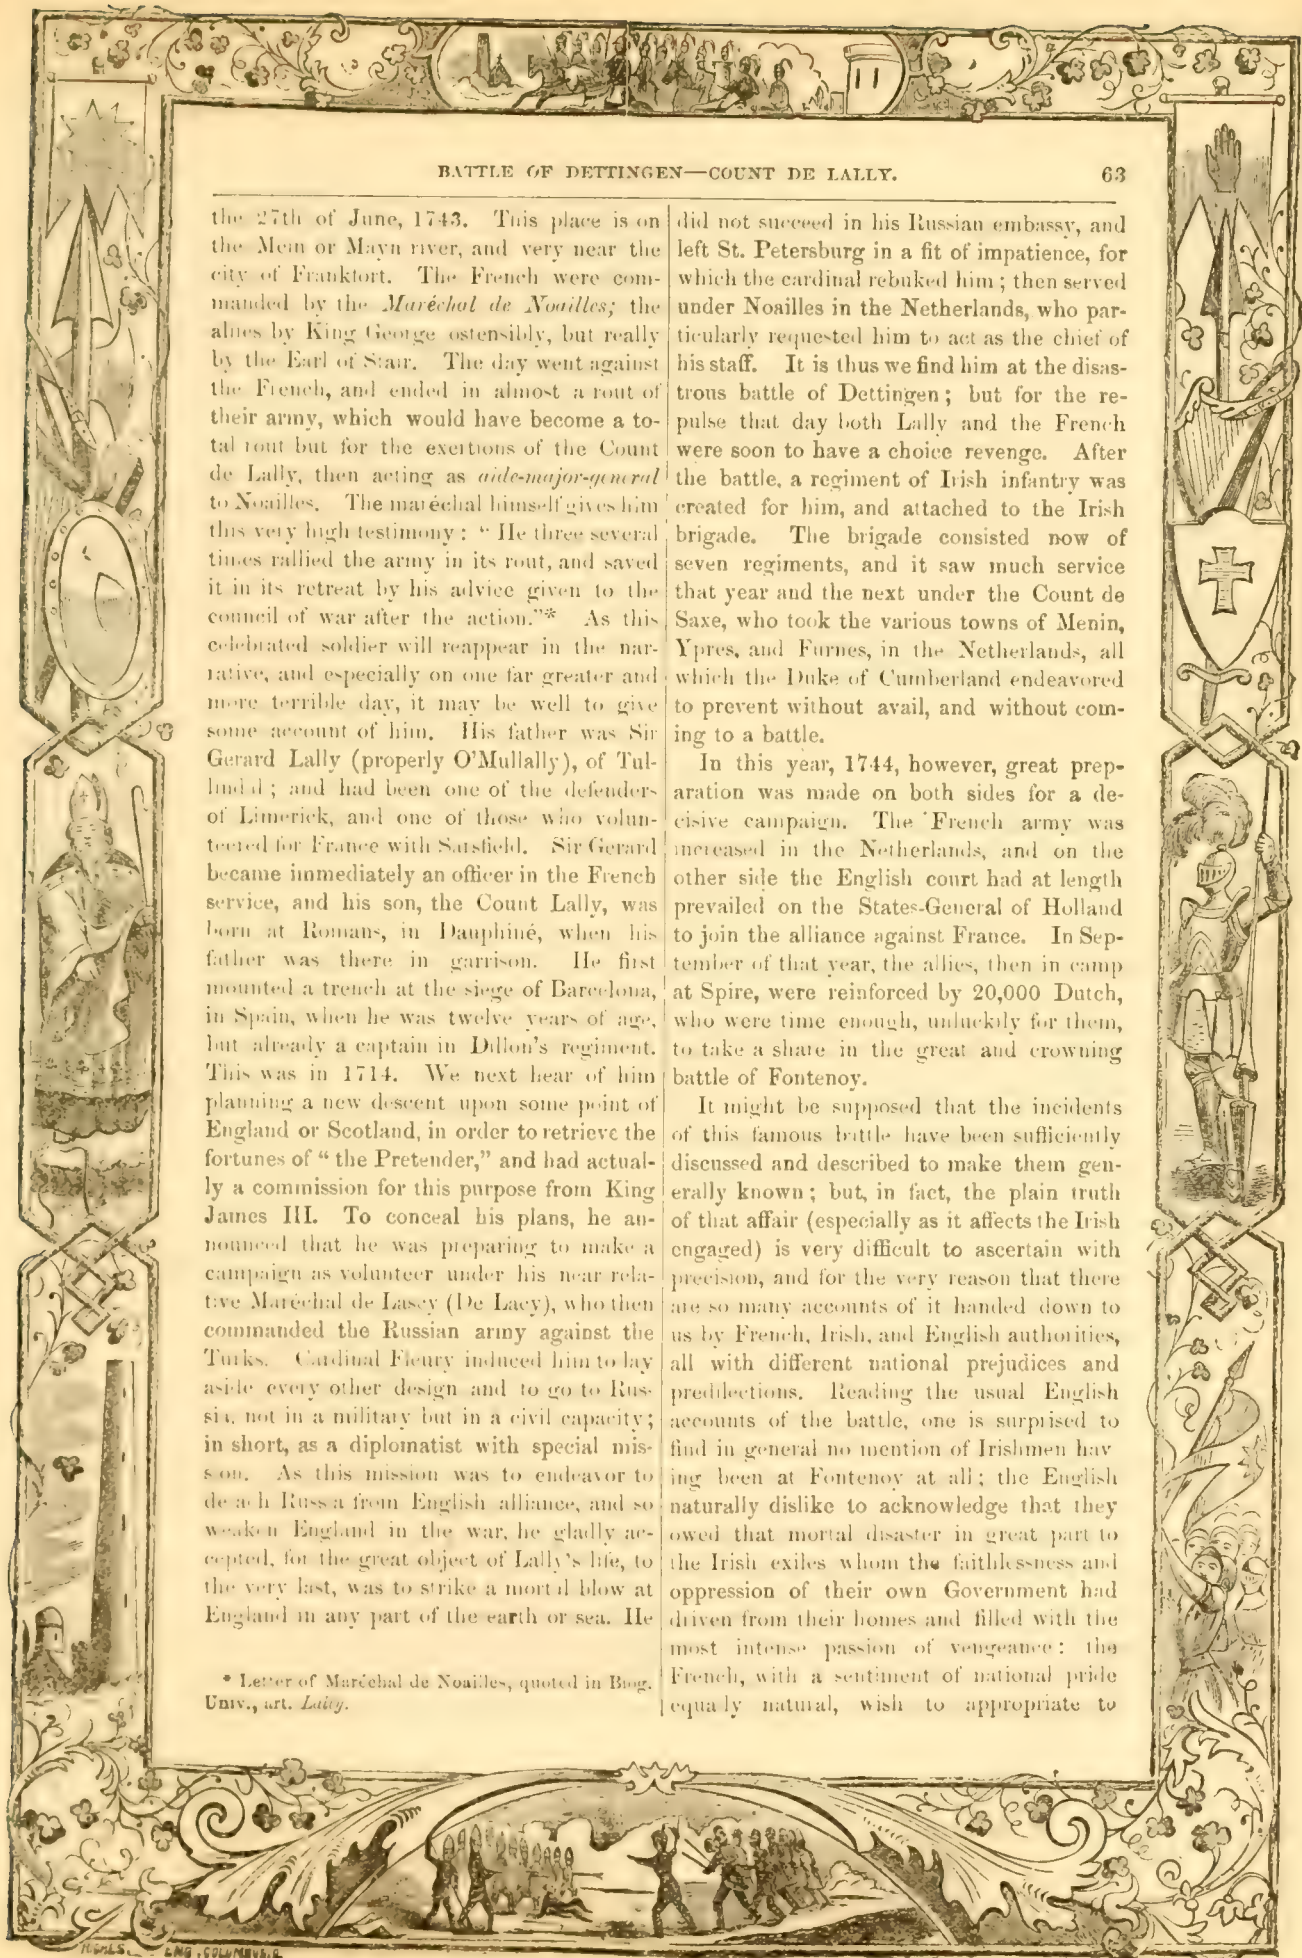 BATTLE OF DETTINGEN—COUNT DE LALLY.
63
the 27th of June, 1743. This place is on
the Mein or Mayn river, and very near the
city of Frankfort. The French were com-
manded by the Maréchal de Noailles; the
allies by King George ostensibly, but really
by the Earl of Stair. The day went against
the French, and ended in almost a rout of
their army, which would have become a to-
tal rout but for the exertions of the Count
de Lally, then acting as aide-major-general
to Noailles. The maréchal himself gives him
this very high testimony: “ He three several
times rallied the army in its rout, and saved
it in its retreat by his advice given to the
council of war after the action.”* As this
celebrated soldier will reappear in the nar-
rative, and especially on one far greater and
more terrible day, it may be well to give
some account of him. His father was Sir
Gerard Lally (properly O’Mullally), of Tul-
lindal; and had been one of the defenders
of Limerick, and one of those who volun-
teered for France with Sarsfield. Sir Gerard
became immediately an officer in the French
service, and his son, the Count Lally, was
born at Romans, in Dauphiné, when his
father was there in garrison. He first
mounted a trench at the siege of Barcelona,
in Spain, when he was twelve years of age,
but already a captain in Dillon’s regiment.
This was in 1714. We next hear of him
planning a new descent upon some point of
England or Scotland, in order to retrieve the
fortunes of “ the Pretender,” and had actual-
ly a commission for this purpose from King
James III. To conceal his plans, he an-
nounced that he was preparing to make a
campaign as volunteer under his near rela-
tive Maréchal de Lascy (De Lacy), who then
commanded the Russian army against the
Turks. Cardinal Fleury induced him to lay
aside every other design and to go to Rus-
sia, not in a military but in a civil capacity;
in short, as a diplomatist with special mis-
sion. As this mission was to endeavor to
detach Russia from English alliance, and so
weaken England in the war, he gladly ac-
cepted, for the great object of Lally’s life, to
the very last, was to strike a mortal blow at
England in any part of the earth or sea. He
* Letter of Maréchal de Noailles, quoted in Biog.
Univ., art. Lally.
did not succeed in his Russian embassy, and
left St. Petersburg in a fit of impatience, for
which the cardinal rebuked him; then served
under Noailles in the Netherlands, who par-
ticularly requested him to act as the chief of
his staff. It is thus we find him at the disas-
trous battle of Dettingen; but for the re-
pulse that day both Lally and the French
were soon to have a choice revenge. After
the battle, a regiment of Irish infantry was
created for him, and attached to the Irish
brigade. The brigade consisted now of
seven regiments, and it saw much service
that year and the next under the Count de
Saxe, who took the various towns of Menin,
Ypres, and Furnes, in the Netherlands, all
which the Duke of Cumberland endeavored
to prevent without avail, and without com-
ing to a battle.
In this year, 1744, however, great prep-
aration was made on both sides for a de-
cisive campaign. The French army was
increased in the Netherlands, and on the
other side the English court had at length
prevailed on the States-General of Holland
to join the alliance against France. In Sep-
tember of that year, the allies, then in camp
at Spire, were reinforced by 20,000 Dutch,
who were time enough, unluckily for them,
to take a share in the great and crowning
battle of Fontenoy.
It might be supposed that the incidents
of this famous battle have been sufficiently
discussed and described to make them gen-
erally known; but, in fact, the plain truth
of that affair (especially as it affects the Irish
engaged) is very difficult to ascertain with
precision, and for the very reason that there
are so many accounts of it handed down to
us by French, Irish, and English authorities,
all with different national prejudices and
predilections. Reading the usual English
accounts of the battle, one is surprised to
find in general no mention of Irishmen hav
ing been at Fontenoy at all; the English
naturally dislike to acknowledge that they
owed that mortal disaster in great part to
the Irish exiles whom the faithlessness and
oppression of their own Government had
driven from their homes and filled with the
most intense passion of vengeance: the
French, with a sentiment of national pride
equally natural, wish to appropriate to
ENG. COLUMBUS.O.